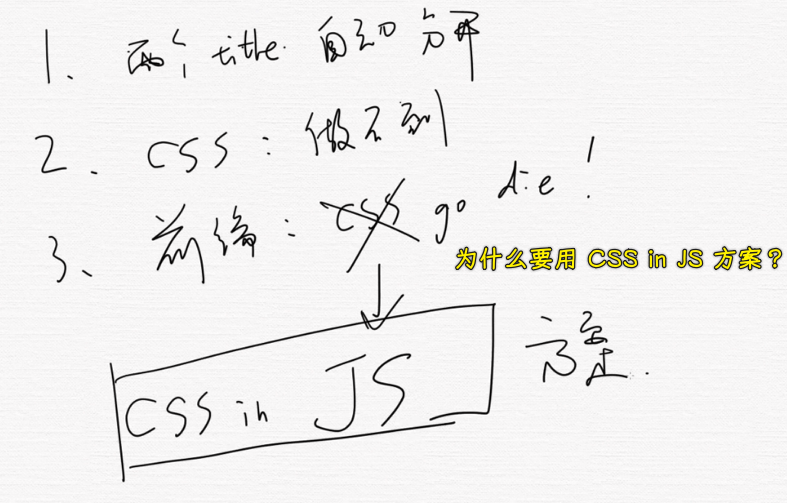 1、两个 title. 自动分开
2、CSS：做不到
3、前端：CSS go die！
为什么要用 CSS in JS 方案？
CSS in JS 方案.